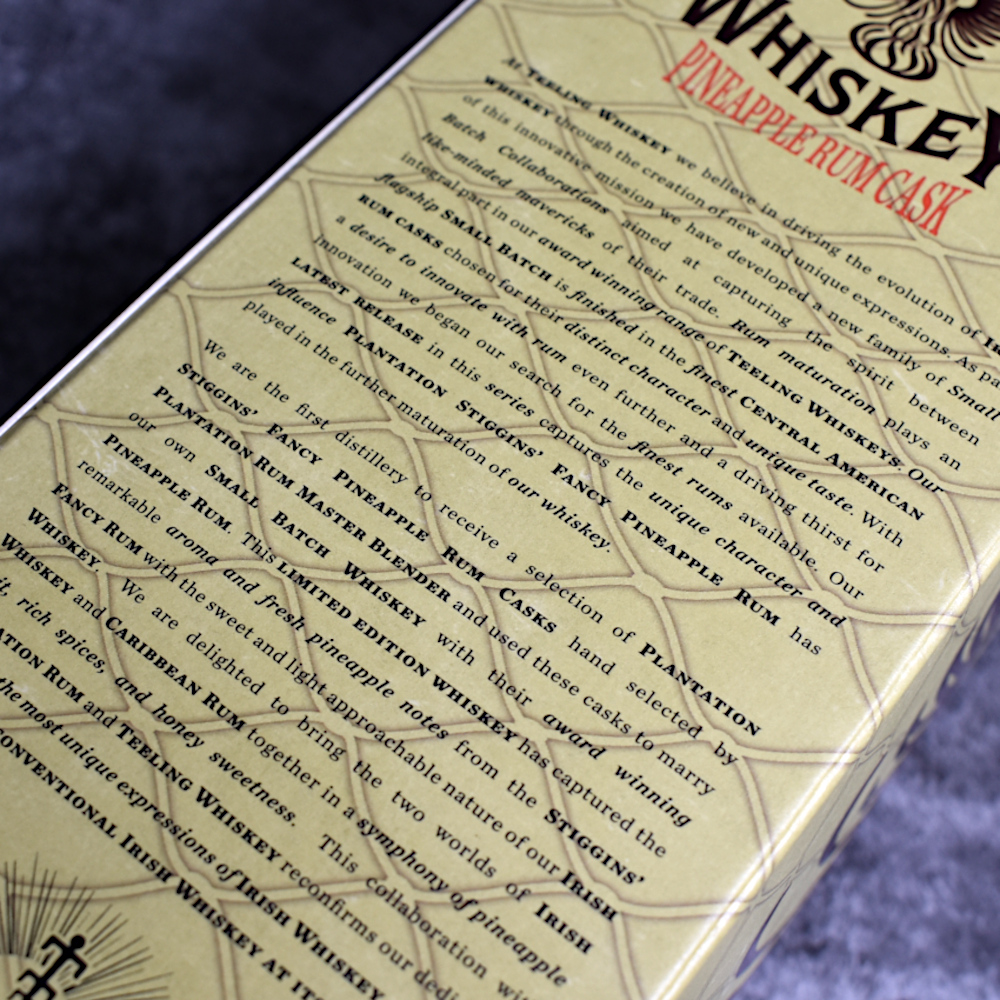 WHISKEY
PINEAPPLE RUM CASK
At TEELING WHISKEY we believe in driving the evolution of
WHISKEY through the creation of new and unique expressions. As pa
of this innovative mission we have developed a new family of Small
Batch Collaborations aimed at capturing the spirit between
like-minded mavericks of their trade. Rum maturation plays an
integral part in our award winning range of TEELING WHISKEYS. Our
flagship SMALL BATCH is finished in the finest CENTRAL AMERICAN
RUM CASKS chosen for their distinct character and unique taste. With
a desire to innovate with rum even further and a driving thirst for
innovation we began our search for the finest rums available. Our
LATEST RELEASE in this series captures the unique character and
influence PLANTATION STIGGINS' FANCY PINEAPPLE RUM has
played in the further maturation of our whiskey.
We are the first distillery to receive a selection of PLANTATION
STIGGINS' FANCY PINEAPPLE RUM CASKS hand selected by
PLANTATION RUM MASTER BLENDER and used these casks to marry
our own SMALL BATCH WHISKEY with their award winning
PINEAPPLE RUM. This LIMITED EDITION WHISKEY has captured the
remarkable aroma and fresh pineapple notes from the STIGGINS'
FANCY RUM with the sweet and light approachable nature of our IRISH
WHISKEY. We are delighted to bring the two worlds of IRISH
WHISKEY and CARIBBEAN RUM together in a symphony of pineapple
it, rich spices, and honey sweetness. This collaboration wit
ATION RUM and TEELING WHISKEY reconfirms our dedi
the most unique expressions of IRISH WHISKEY
CONVENTIONAL IRISH WHISKEY AT ITS